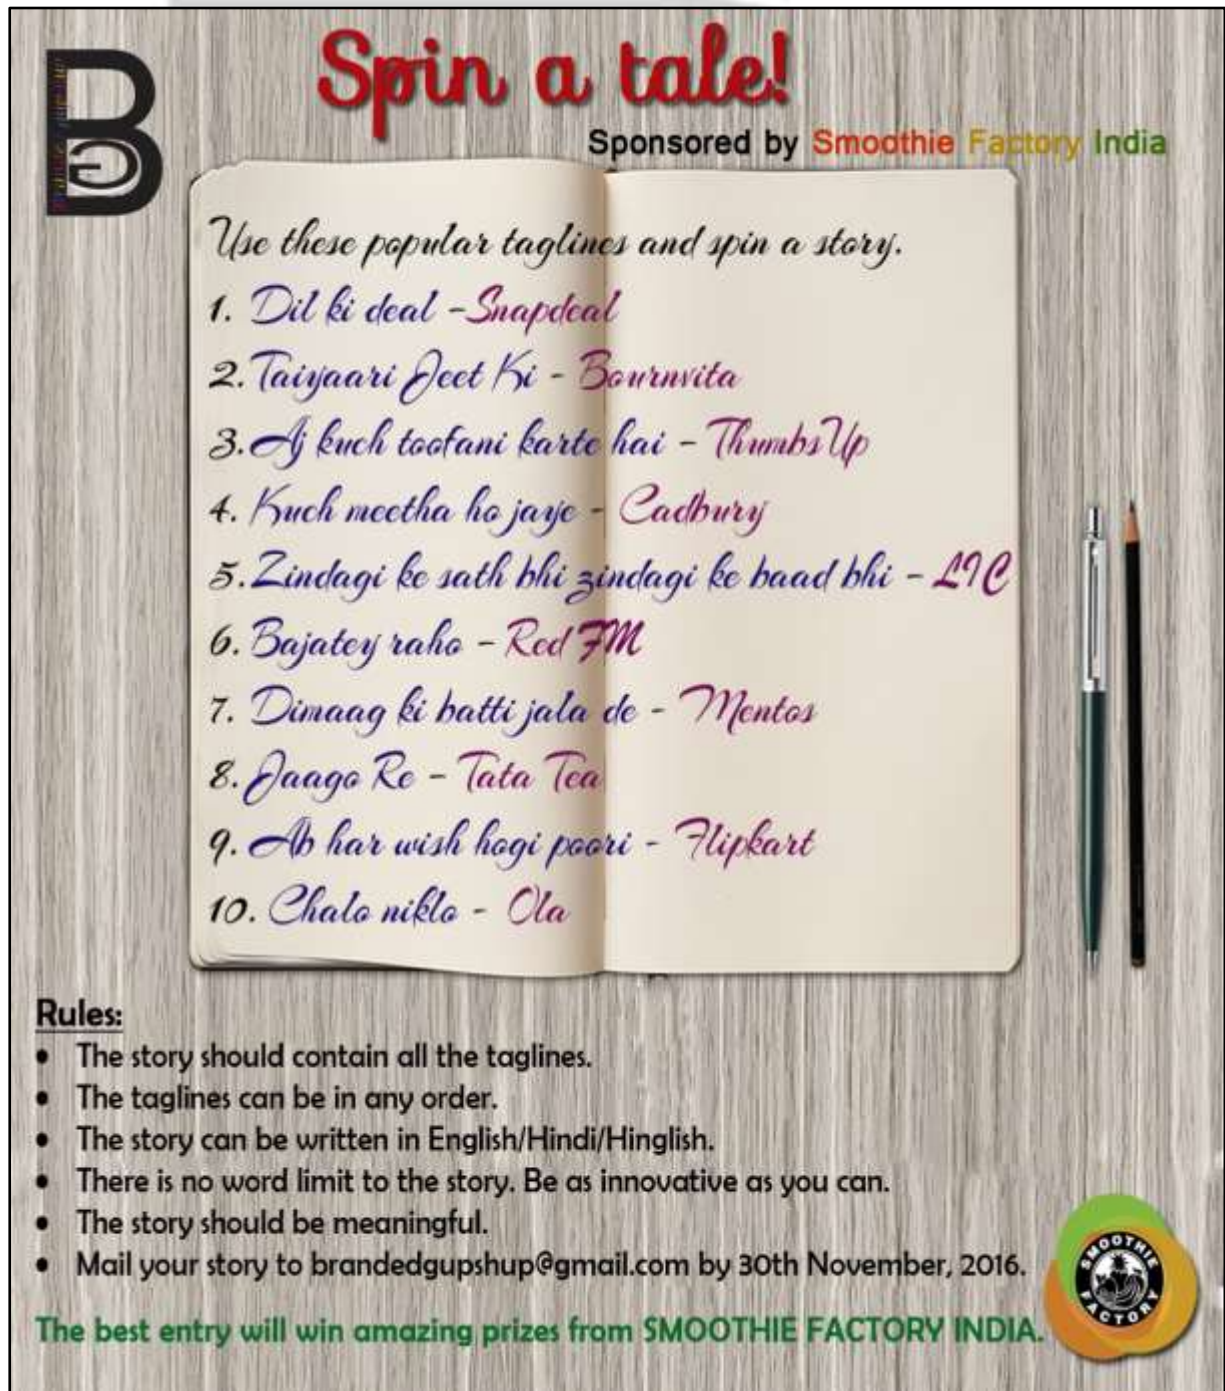 Spin a tale!
BG
Sponsored by Smoothie Factory India
Use these popular taglines and spin a story.
1. Dil ki deal - Snapdeal
2. Taiyaari Jeet Ki - Bournvita
3. Aj kuch toofani karte hai - ThumbsUp
4. Kuch meetha ho jaye - Cadbury
5. Zindagi ke sath bhi zindagi ke baad bhi - LIC
6. Bajatey raho - Red FM
7. Dimaag ki batti jala de - Mentos
8. Jaago Re - Tata Tea
9. Ab har wish hogi poori - Flipkart
10. Chalo niklo - Ola
Rules:
• The story should contain all the taglines.
• The taglines can be in any order.
• The story can be written in English/Hindi/Hinglish.
• There is no word limit to the story. Be as innovative as you can.
• The story should be meaningful.
• Mail your story to brandedgupshup@gmail.com by 30th November, 2016.
The best entry will win amazing prizes from SMOOTHIE FACTORY INDIA.
SMOOTHIE
FACTORY